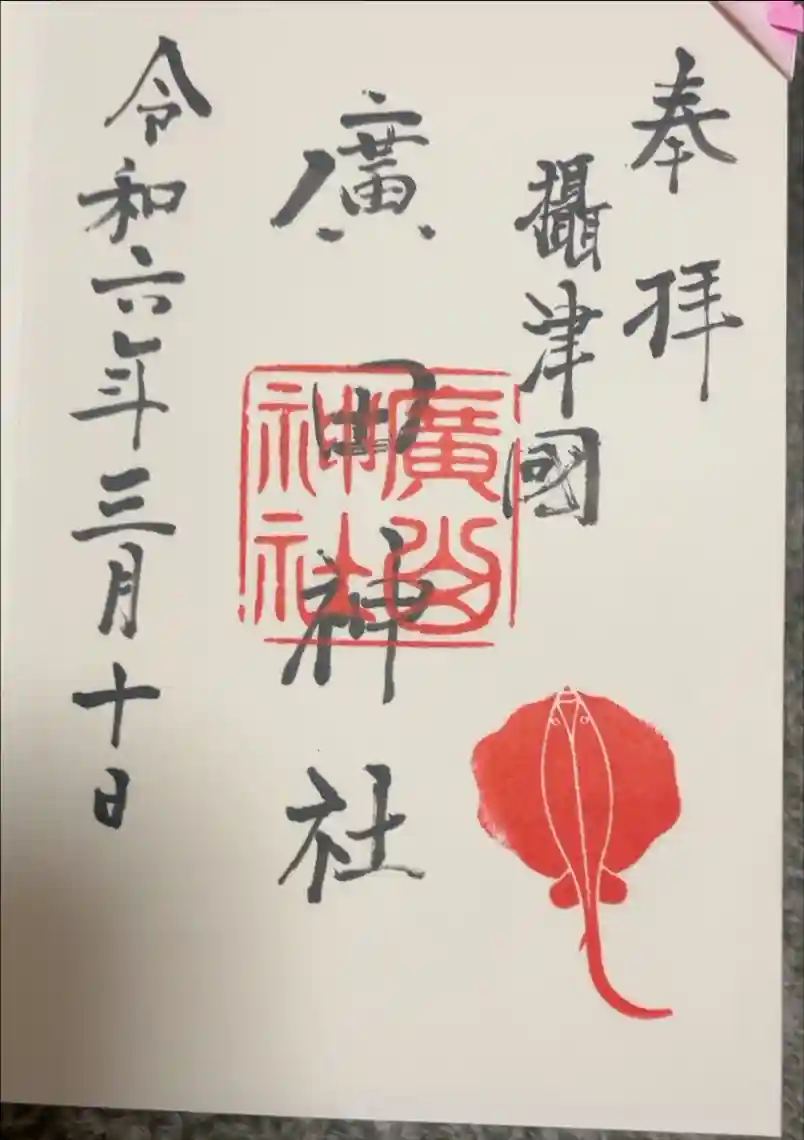 奉拝
攝津國
廣田神社
令和六年三月十日
廣
神社